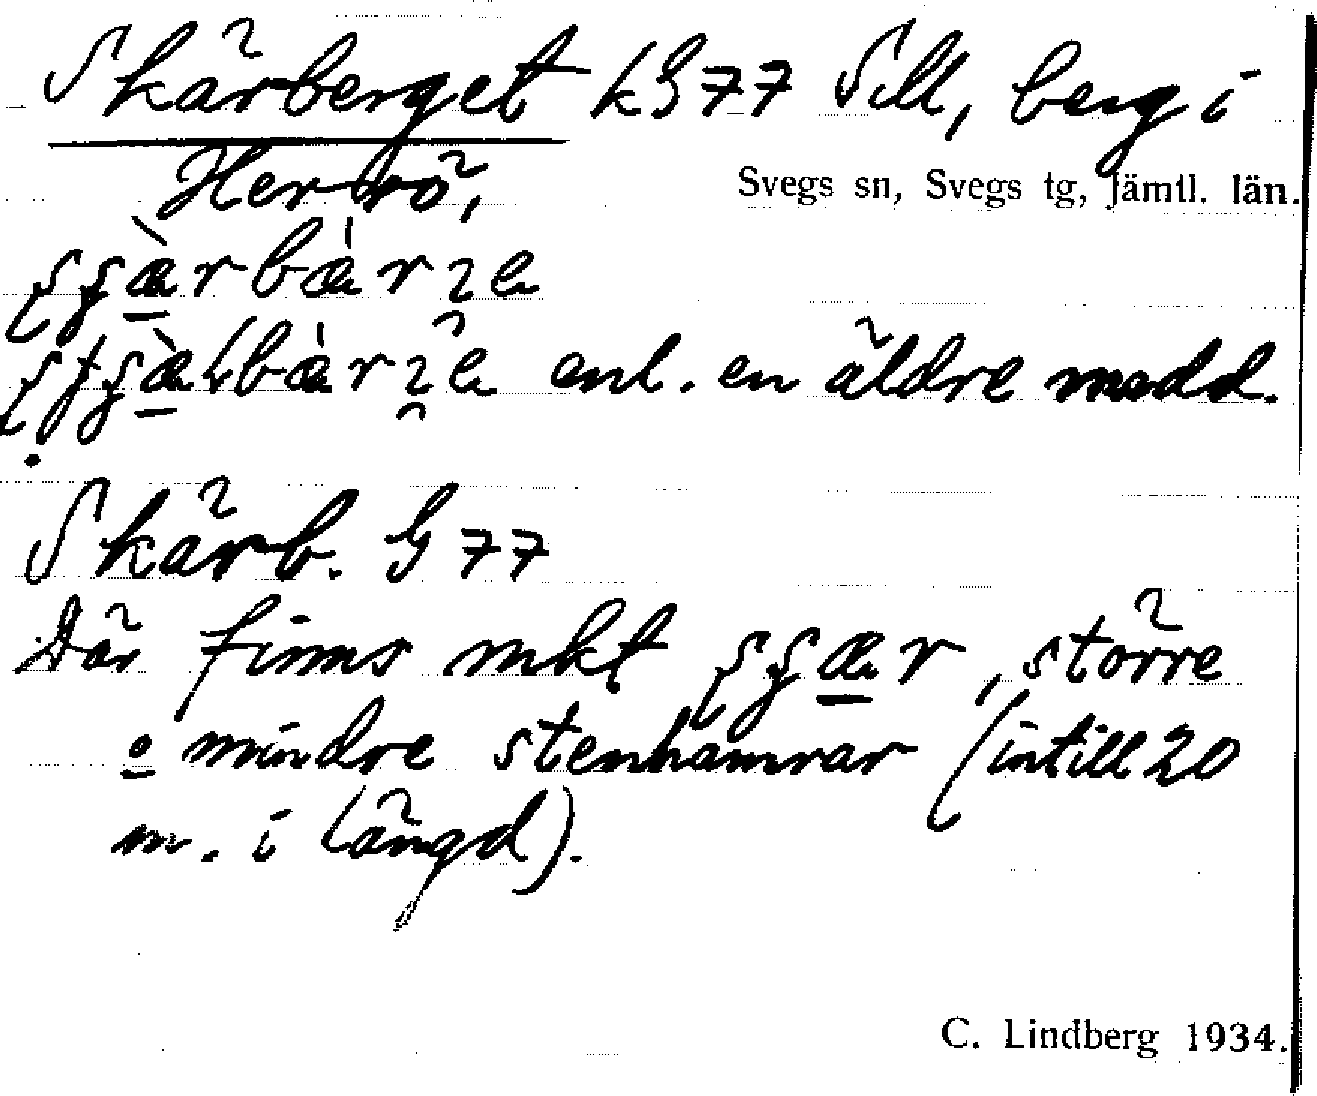 Skärberget kG77 SM, berg i
Herrö,
Svegs sn, Svegs tg, Jämtl. län.
enl. en äldre medd.
Skärb. G 77
Där finns mkt , större
o mindre stenhamrar (intill 20
m. i längd).
C. Lindberg 1934.